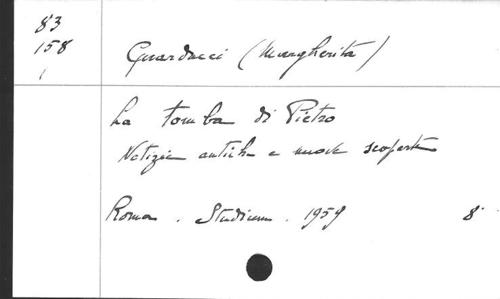 83
158
1
Guarducci (Margherita)
La tomba di Pietro
Notizie antiche e nuove scoperte
Roma . Studium . 1959 8°